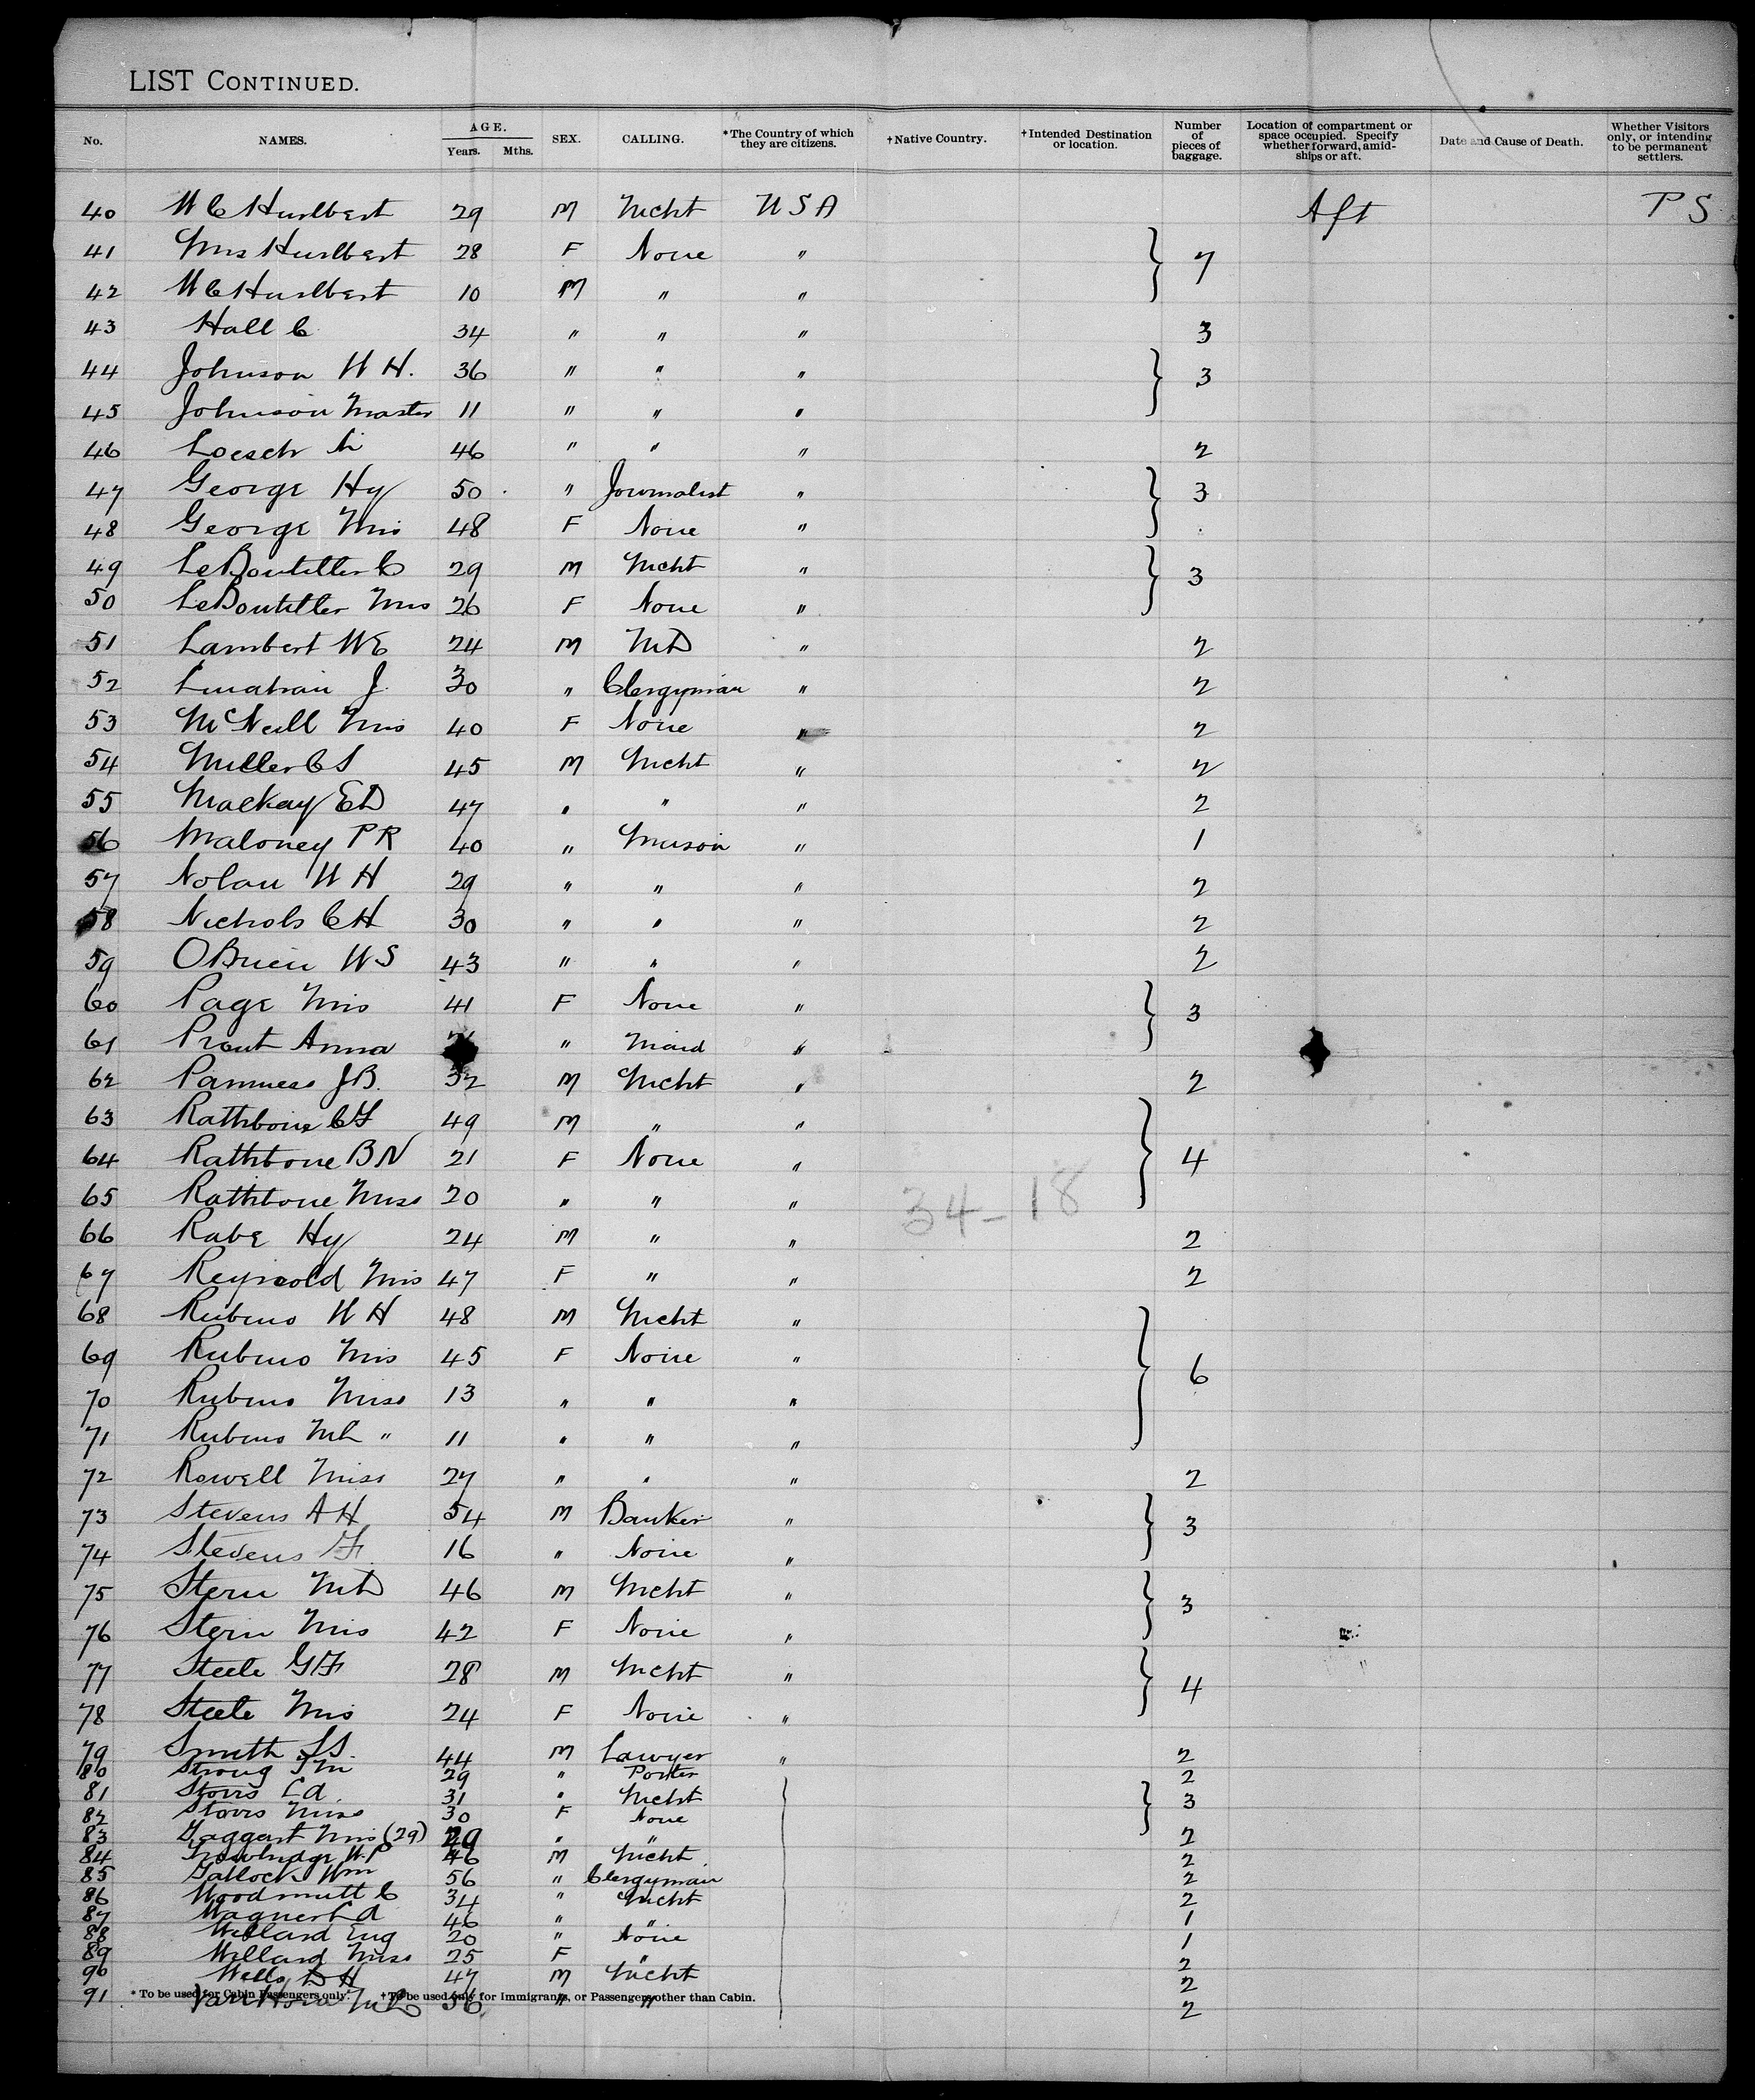 LIST CONTINUED.
No. NAMES. AGE. Years. Mths. SEX. CALLING. *The Country of which they are citizens. †Native Country. †Intended Destination or location. Number of pieces of baggage. Location of compartment or space occupied. Specify whether forward, amidships or aft. Date and Cause of Death. Whether Visitors only, or intending to be permanent settlers.
40 W C Hurlbert 29 M Mcht USA Aft P S
41 Mrs Hurlbert 28 F None " } 7
42 W C Hurlbert 10 M " "
43 Hall C 34 " " " 3
44 Johnson W H. 36 " " " } 3
45 Johnson Master 11 " " "
46 Loesch 46 " " " 2
47 George Hy 50 " Journalist " } 3
48 George Mrs 48 F None "
49 LeBoutiller C 29 M Mcht " } 3
50 LeBoutiller Mrs 26 F None "
51 Lambert W E 24 M MD " 2
52 J. 30 " Clergyman " 2
53 McNeill Mrs 40 F None " 2
54 Miller C S 45 M Mcht " 2
55 Mackay E D 47 " " " 2
56 Maloney P R 40 " Mason " 1
57 Nolan W H 29 " " " 2
58 Nichols C H 30 " " " 2
59 OBrien W S 43 " " " 2
60 Page Mrs 41 F None " } 3
61 Prout Anna " Maid "
62 J B. 32 M Mcht " 2
63 Rathbone C F 49 M " " } 4
64 Rathbone B N 21 F None "
65 Rathbone Miss 20 " " "
34-18
66 Rabe Hy 24 M " " 2
67 Reynold Mrs 47 F " " 2
68 Rubens W H 48 M Mcht " } 6
69 Rubens Mrs 45 F None "
70 Rubens Miss 13 " " "
71 Rubens " 11 " " "
72 Rowell Miss 27 " " " 2
73 Stevens A H 54 M Banker " } 3
74 Stevens F. 16 " None "
75 Stern M D 46 M Mcht " } 3
76 Stern Mrs 42 F None "
77 Steele G F 28 M Mcht " } 4
78 Steele Mrs 24 F None "
79 Smith S S. 44 M Lawyer " 2
80 Strong T M 29 " Porter 2
81 Storrs Ed. 31 " Mcht } 3
82 Storrs Miss 30 F None
83 Taggart Mrs (29) 29 " " 2
84 Trowbridge W. P 46 M Mcht 2
85 Wm 56 " Clergyman 2
86 C 34 " Mcht 2
87 Wagner Ed 46 " " 1
88 Willard Eug 20 " None 1
89 Willard Miss 25 F " 2
90 Wells D H 47 M Mcht 2
91 Van Horn 36 " " 2
* To be used for Cabin Passengers only. † To be used only for Immigrants, or Passengers other than Cabin.